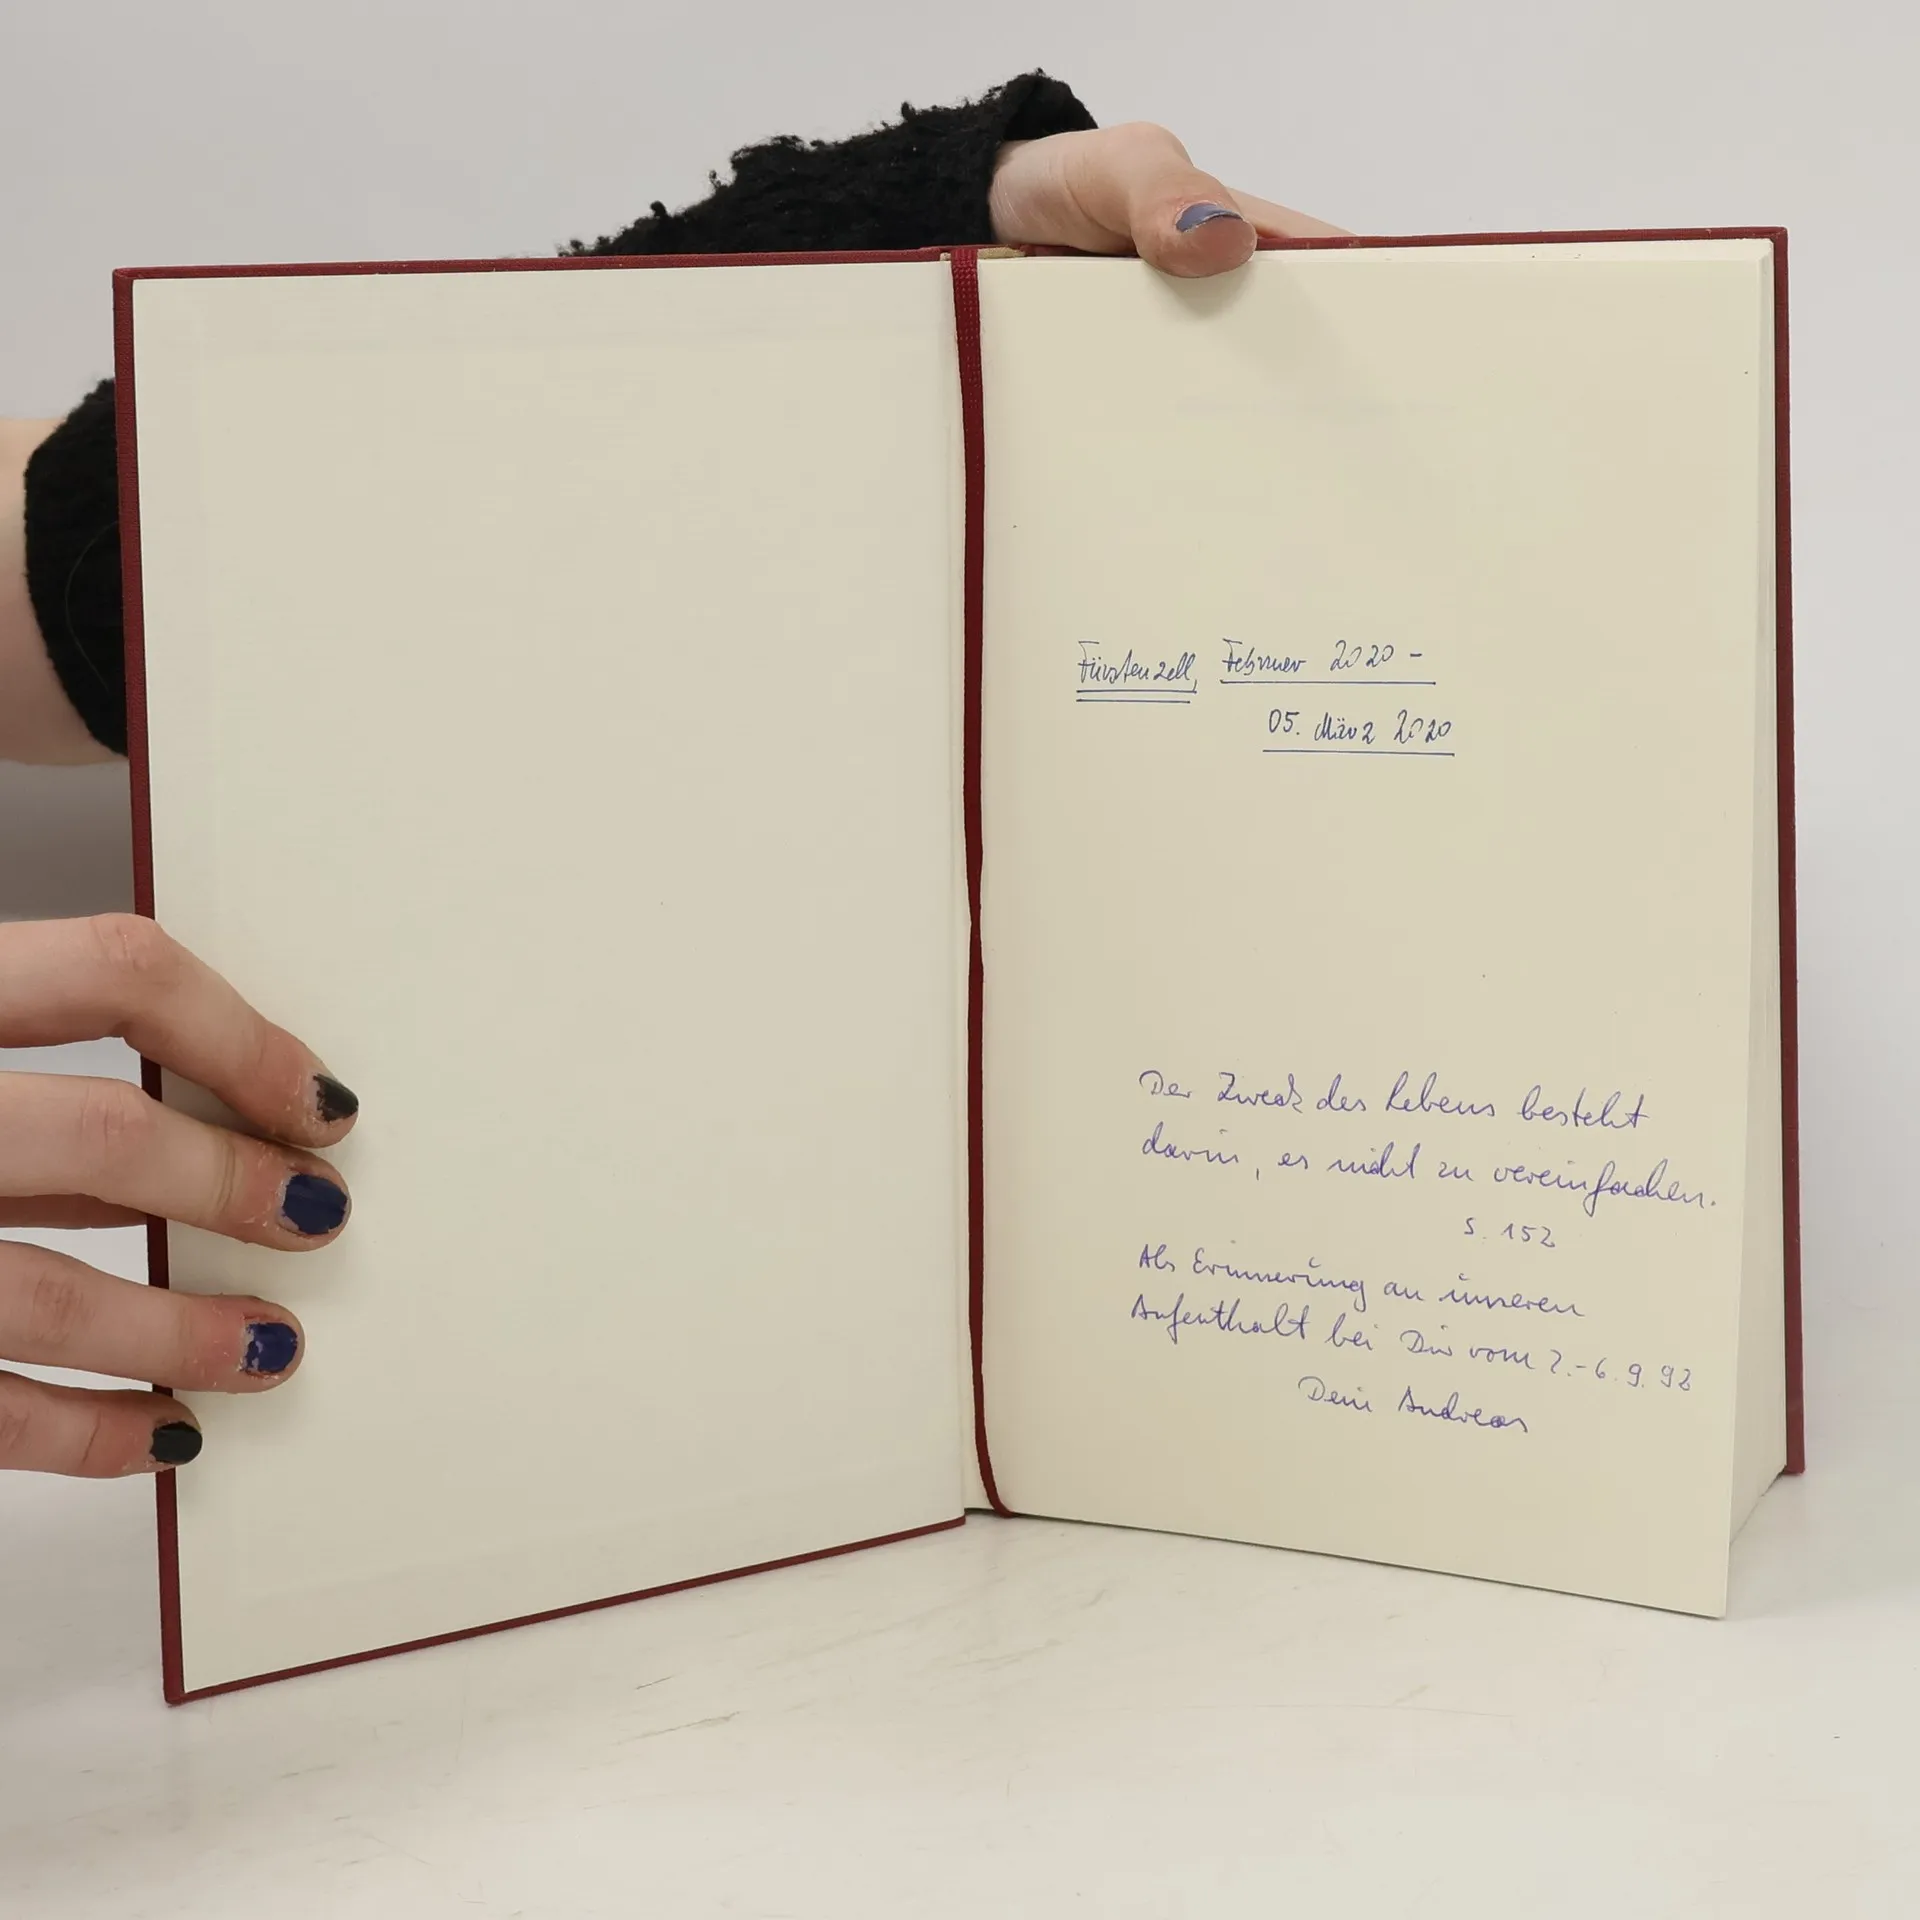 Fürstenzell, Februar 2020 -
05. März 2020
Der Zweck des Lebens besteht
darin, es nicht zu vereinfachen.
S. 152
Als Erinnerung an unseren
Aufenthalt bei Dir vom 2.-6.9.92
Dein Andreas